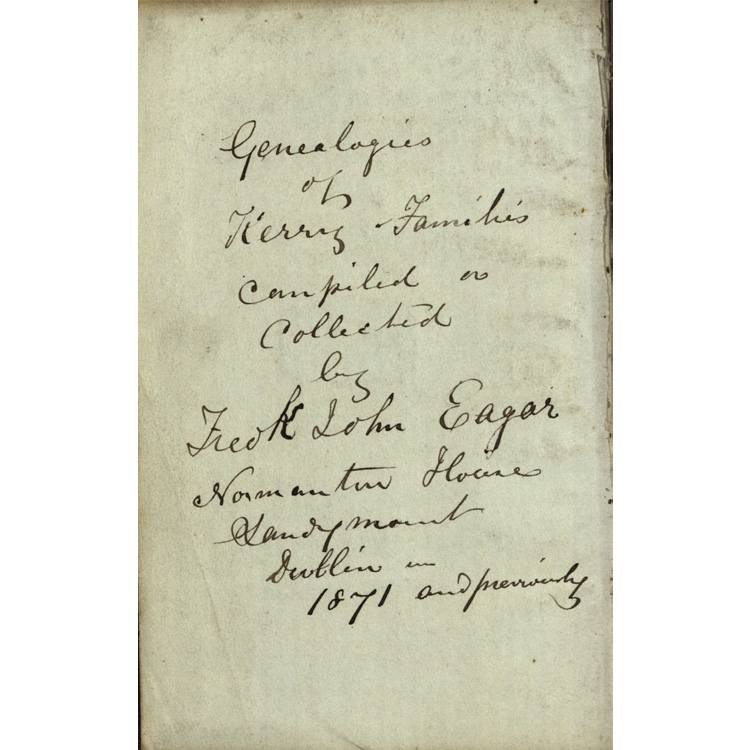 Genealogies
of
Kerry Families
Compiled or
Collected
by
Fredk John Eagar
Normanton House
Sandymount
Dublin in
1871 and previously